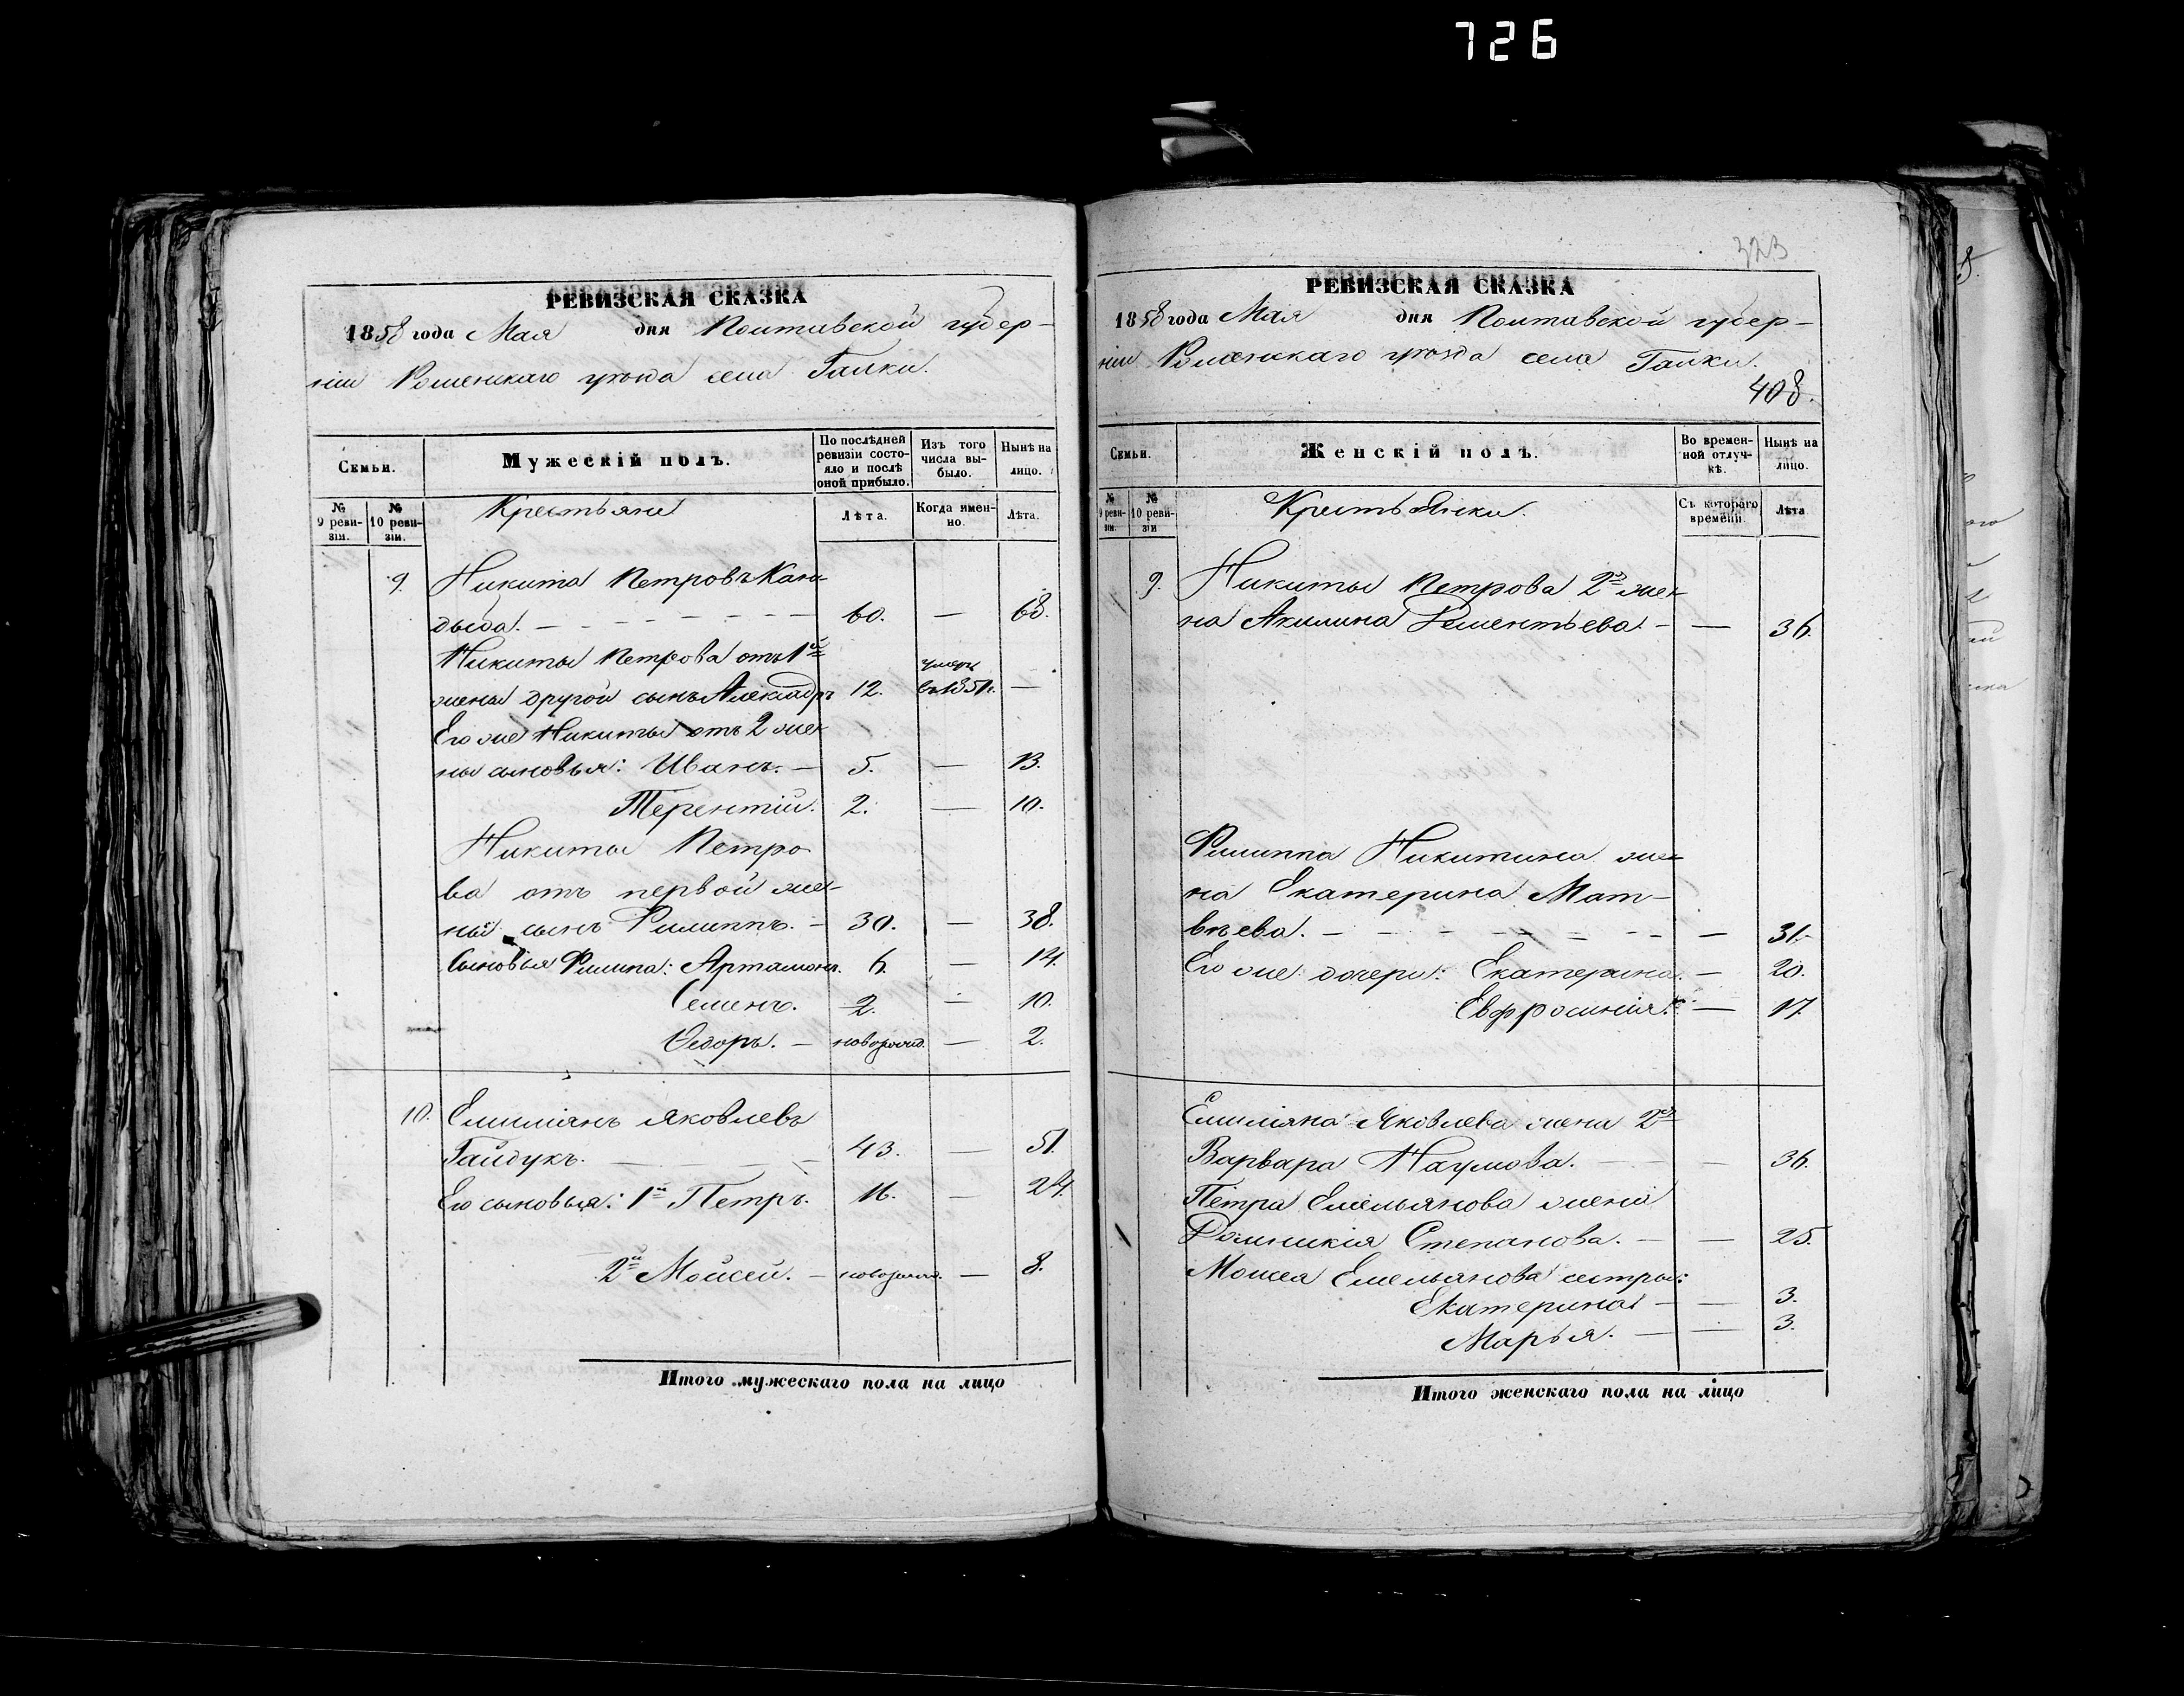 726
РЕВИЗСКАЯ СКАЗКА
1858 года Мая дня Полтавской губер-
ніи Роменскаго уѣзда села Галки.
Семьи.
Мужескій полъ.
По послѣдней ревизіи состо-яло и послѣ оной прибыло.
Изъ того числа вы-было.
Нынѣ на лицо.
№ 9 реви-зіи.
№ 10 реви-зіи.
Крестьяне
Лѣта.
Когда имен-но.
Лѣта.
9. Никита Петровъ Кан-
дыба. 60. — 68.
Никиты Петрова отъ 1й
жены другой сынъ Александръ 12. умеръ въ 1851. —
Его же Никиты отъ 2 жен-
ны сыновья: Иванъ. — 5. — 13.
Терентій. 2. — 10.
Никиты Петро-
ва отъ первой же-
ны сынъ Филиппъ. — 30. — 38.
Сыновья Филипа: Артамонъ. 6. — 14.
Семенъ. 2. — 10.
Ѳедоръ. — новорожд. — 2.
10. Емиліянъ Яковлевъ
Гайдукъ. 43. — 51.
Его сыновья: 1й Петръ. 16. — 24.
2й Мойсей. — новорожд. — 8.
Итого мужескаго пола на лицо
323
РЕВИЗСКАЯ СКАЗКА
1858 года Мая дня Полтавской губер-
ніи Роменскаго уѣзда села Галки.
408.
Семьи.
Женскій полъ.
Во времен-ной отлуч-кѣ.
Нынѣ на лицо.
№ 9 реви-зіи.
№ 10 реви-зіи
Крестьянки.
Съ котораго времени.
Лѣта
9. Никиты Петрова 2я жен-
на Акилина Дементьева. — — 36.
Филиппа Никитина же-
на Екатерина Мат-
вѣева. — 31.
Его же дочери: Екатерина. — 20.
Евфросинія. — 17.
Емиліяна Яковлева жена 2я
Варвара Наумова. — 36.
Петра Емельянова жена
Домникія Степанова. — — 25.
Моисея Емельянова сестры:
Екатерина — — 3.
Марья. — — 3.
Итого женскаго пола на лицо